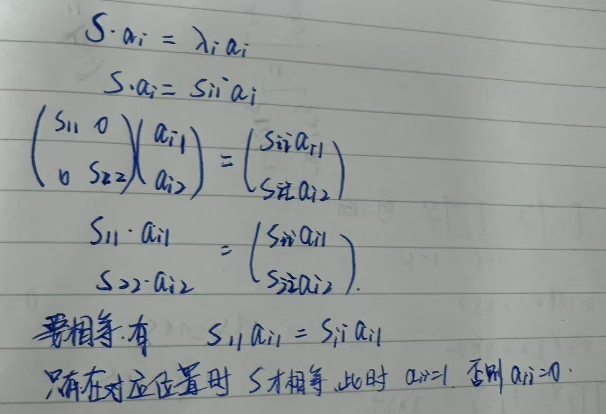 S·aᵢ = λᵢaᵢ
S·aᵢ = sᵢᵢaᵢ
(s₁₁ 0; 0 s₂₂)(aᵢ₁; aᵢ₂) = (sᵢᵢaᵢ₁; sᵢᵢaᵢ₂)
s₁₁·aᵢ₁ = (sᵢᵢaᵢ₁
s₂₂·aᵢ₂ sᵢᵢaᵢ₂).
要相等.有 s₁₁aᵢ₁ = sᵢᵢaᵢ₁
只有在对应位置时 S才相等,此时 aᵢᵢ=1. 否则 aᵢᵢ=0.